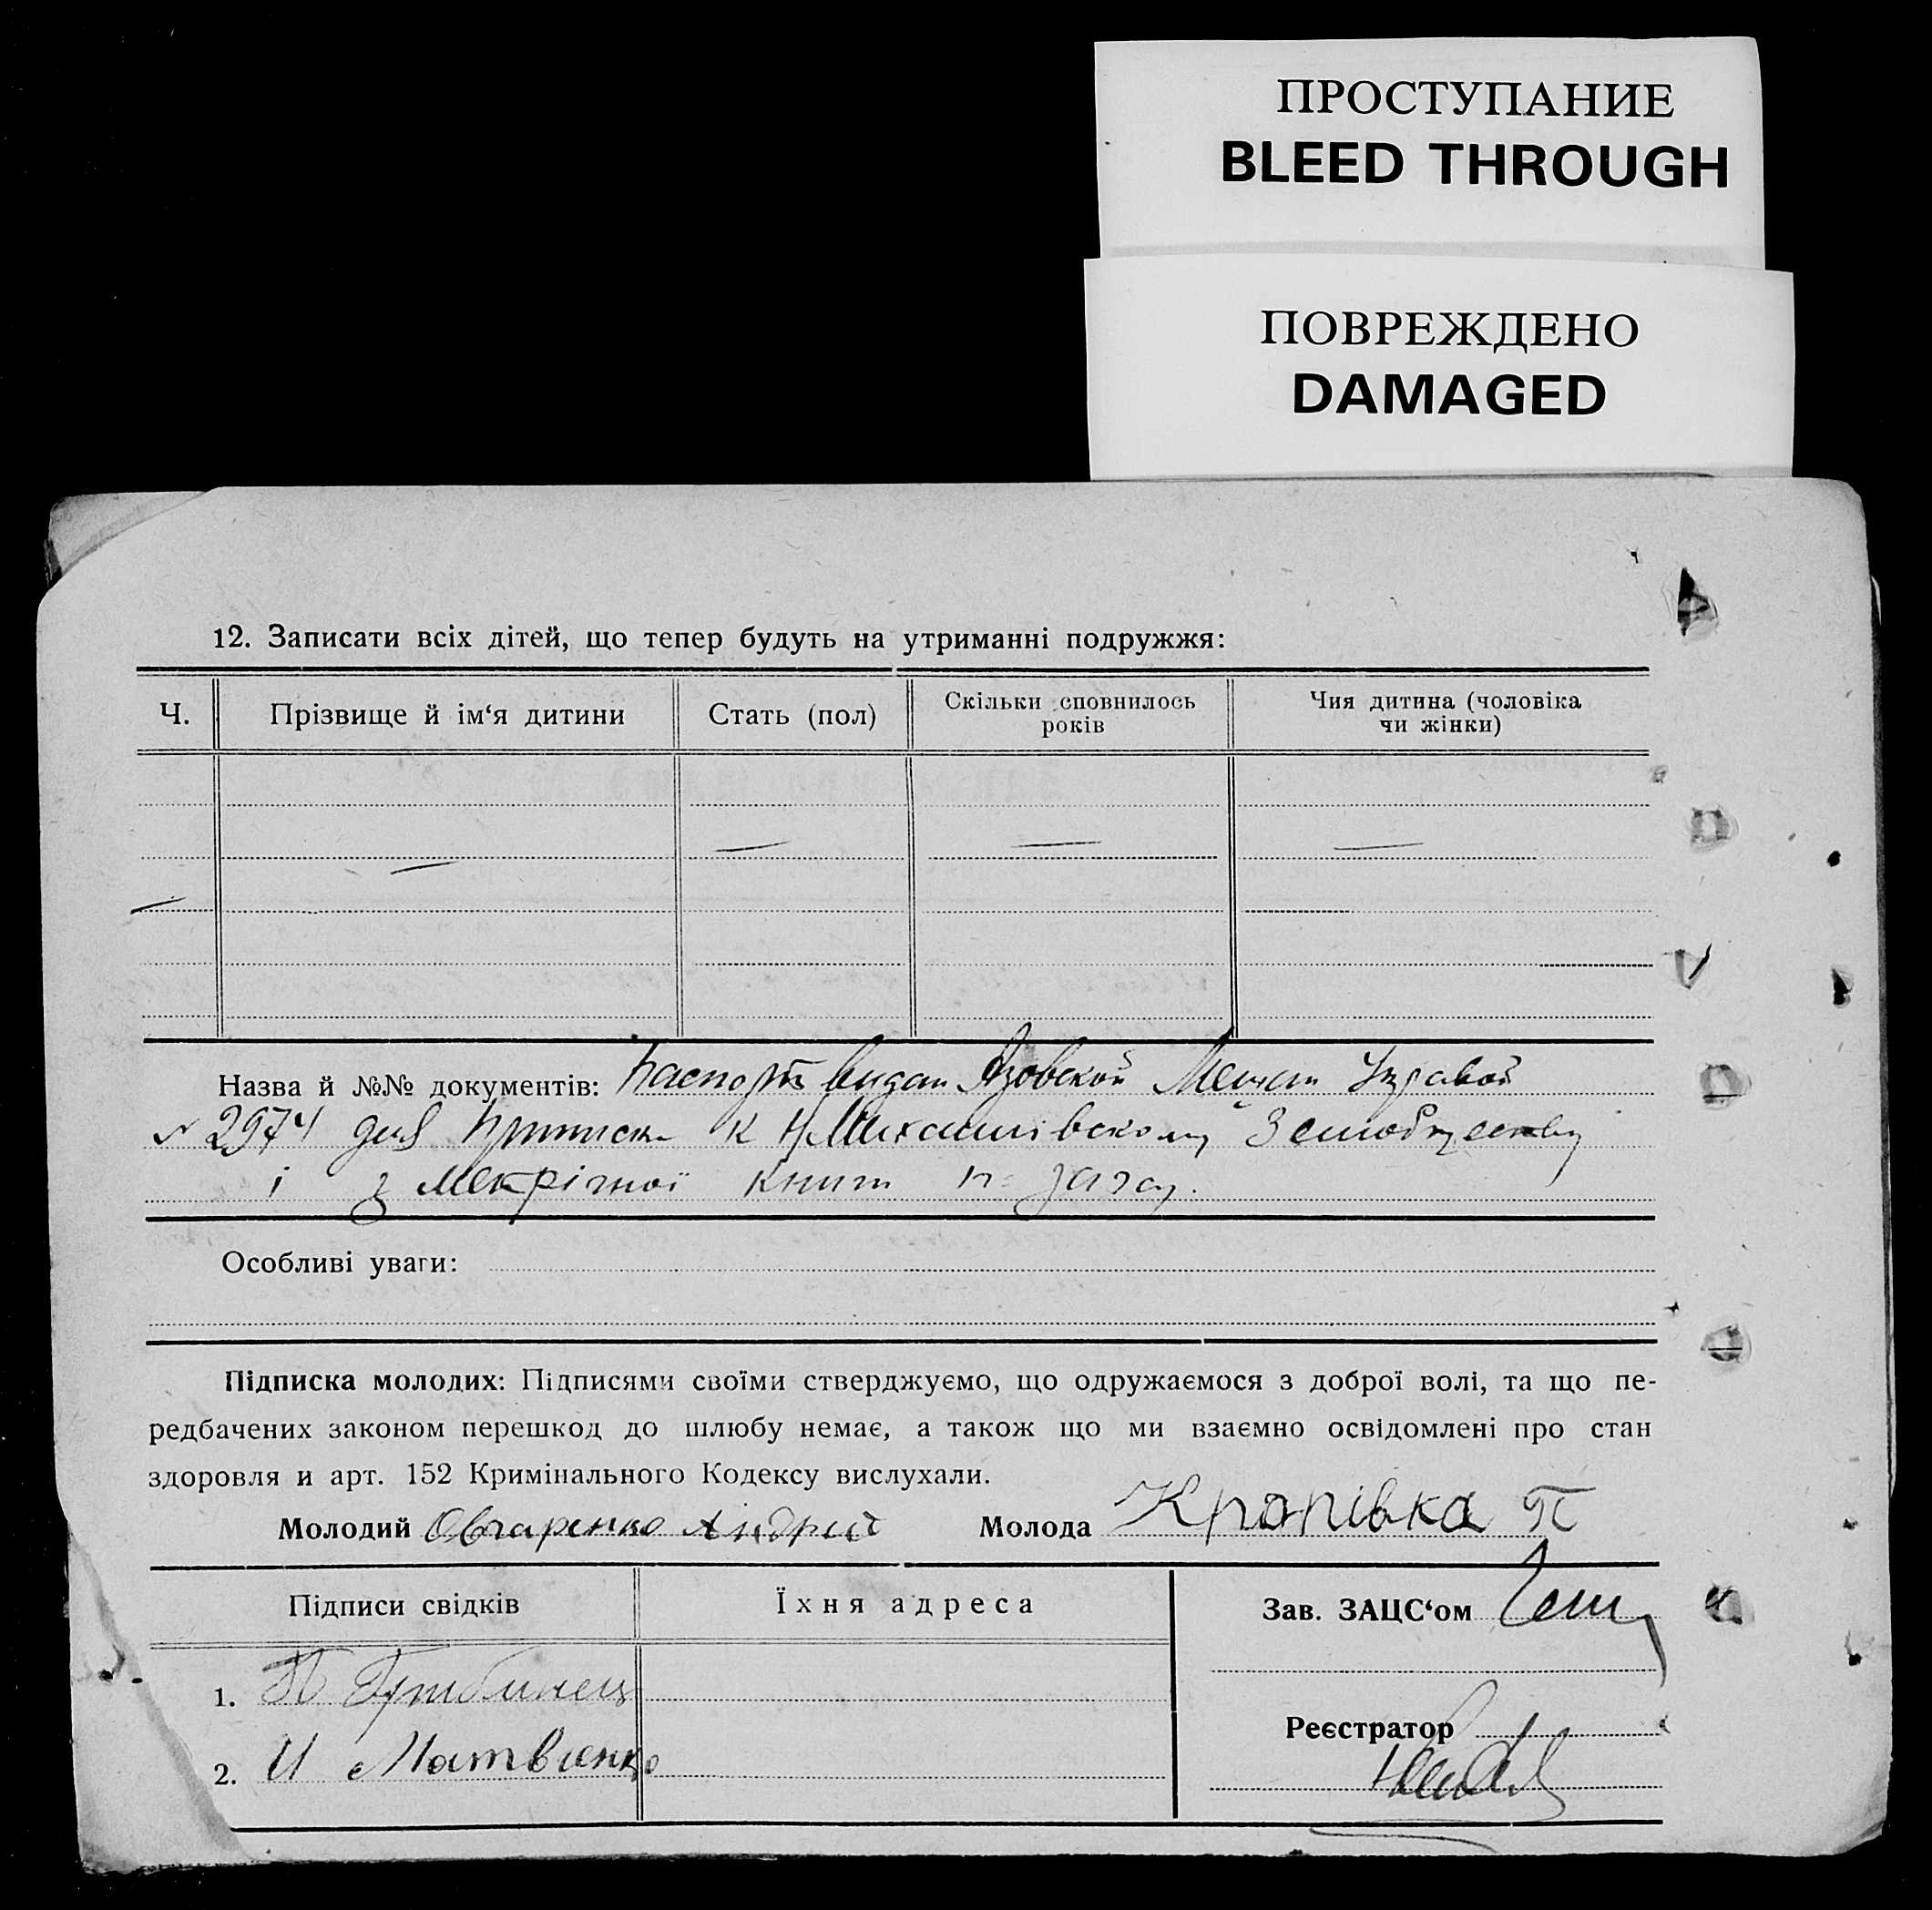 ПРОСТУПАНИЕ
BLEED THROUGH
ПОВРЕЖДЕНО
DAMAGED
12. Записати всіх дітей, що тепер будуть на утриманні подружжя:
Ч. Прізвище й ім‘я дитини Стать (пол) Скільки сповнилось років Чия дитина (чоловіка чи жінки)
Назва й №№ документів: паспорт видан Азовской Мещан Управой
№ 2974 для приписки к Н Михайлівскому
і з Метрічної книги
Особливі уваги:
Підписка молодих: Підписями своїми стверджуємо, що одружаємося з доброї волі, та що пе-
редбачених законом перешкод до шлюбу немає, а також що ми взаємно освідомлені про стан
здоровля и арт. 152 Кримінального Кодексу вислухали.
Молодий Овчаренко Андрий Молода Кропівка П
Підписи свідків Їхня адреса Зав. ЗАЦС‘ом
1. П
Реєстратор
2. И Матвіенко